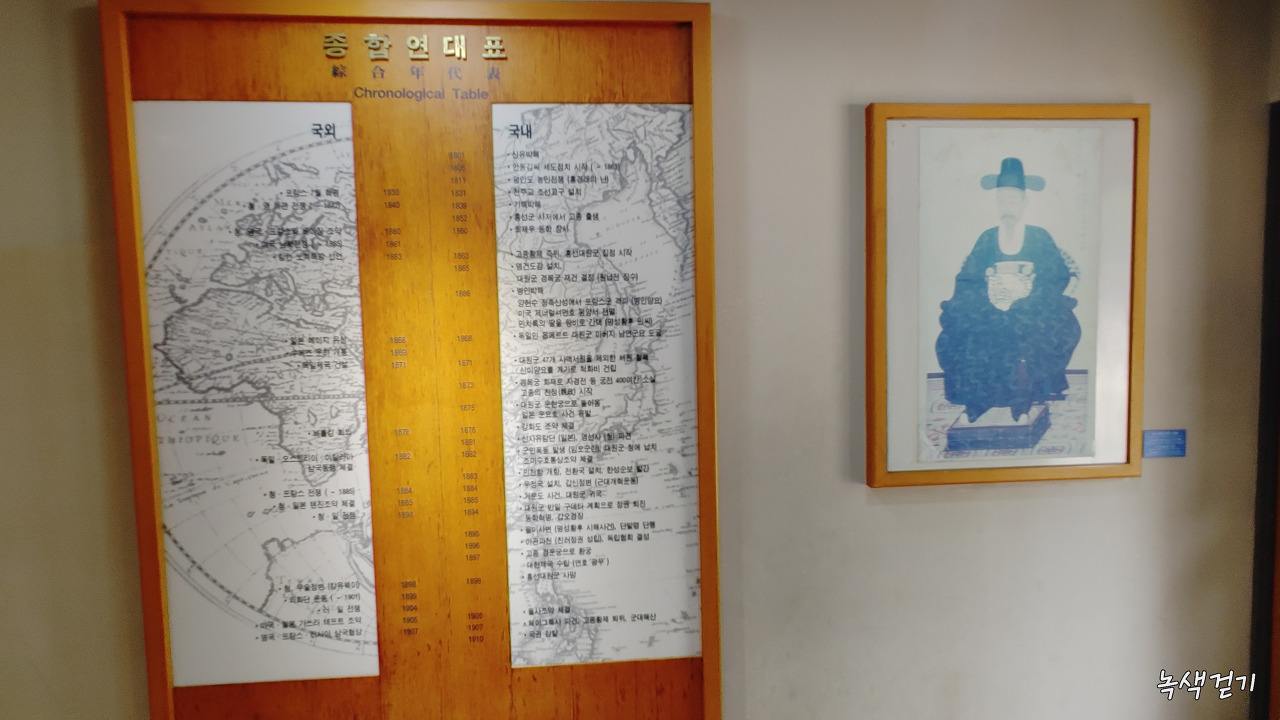 종합연대표
綜合年代表
Chronological Table
국외
프랑스 7월 혁명 1830
1840
1860
1861
1863
일본 메이지 유신 1868
수에즈 운하 개통 1869
독일제국 건설 1871
베를린 회의 1878
독일·오스트리아·이탈리아 1882
삼국동맹 체결
청·프랑스 전쟁 ( ~ 1885) 1884
청·일본 톈진조약 체결 1885
청·일 전쟁 1894
청, 무술정변 (캉유웨이) 1898
의화단 운동 ( ~ 1901) 1899
러·일 전쟁 1904
미국·일본 가쓰라 태프트 조약 1905
영국·프랑스·러시아 삼국협상 1907
국내
1801 신유박해
1805 안동김씨 세도정치 시작 ( ~ 1863)
1811 평안도 농민전쟁 (홍경래의 난)
1831 천주교 조선교구 설치
1839 기해박해
1852 흥선군 사저에서 고종 출생
1860 최제우 동학 창시
1863 고종황제 즉위, 흥선대원군 집정 시작
1865 영건도감 설치,
대원군 경복궁 재건 결정 (원납전 징수)
1866 병인박해
양헌수 정족산성에서 프랑스군 격파 (병인양요)
미국 제너럴셔먼호 평양서 전멸
민치록의 딸을 왕비로 간택 (명성황후 민씨)
1868 독일인 옵페르트 대원군 아버지 남연군묘 도굴
1871 대원군 47개 사액서원을 제외한 서원 철폐
신미양요를 계기로 척화비 건립
1873 경복궁 화재로 자경전 등 궁전 400여칸 소실
고종의 친정(親政) 시작
1875 대원군 운현궁으로 돌아옴
일본 운요호 사건 유발
1876 강화도 조약 체결
1881 신사유람단 (일본), 영선사 (청) 파견
1882 군민폭동 발생 (임오군란), 대원군 청에 납치
조미수호통상조약 체결
1883 인천항 개항, 전환국 설치, 한성순보 발간
1884 우정국 설치, 갑신정변 (근대개혁운동)
1885 거문도 사건, 대원군 귀국
1894 대원군 반일 구데타 계획으로 정권 퇴진
동학혁명, 갑오경장
1895 을미사변 (명성황후 시해사건), 단발령 단행
1896 아관파천 (친러정권 성립), 독립협회 결성
1897 고종 경운궁으로 환궁
대한제국 수립 (연호 '광무')
1898 흥선대원군 사망
1905 을사조약 체결
1907 헤이그특사 파견, 고종황제 퇴위, 군대해산
1910 국권 침탈
녹색걷기